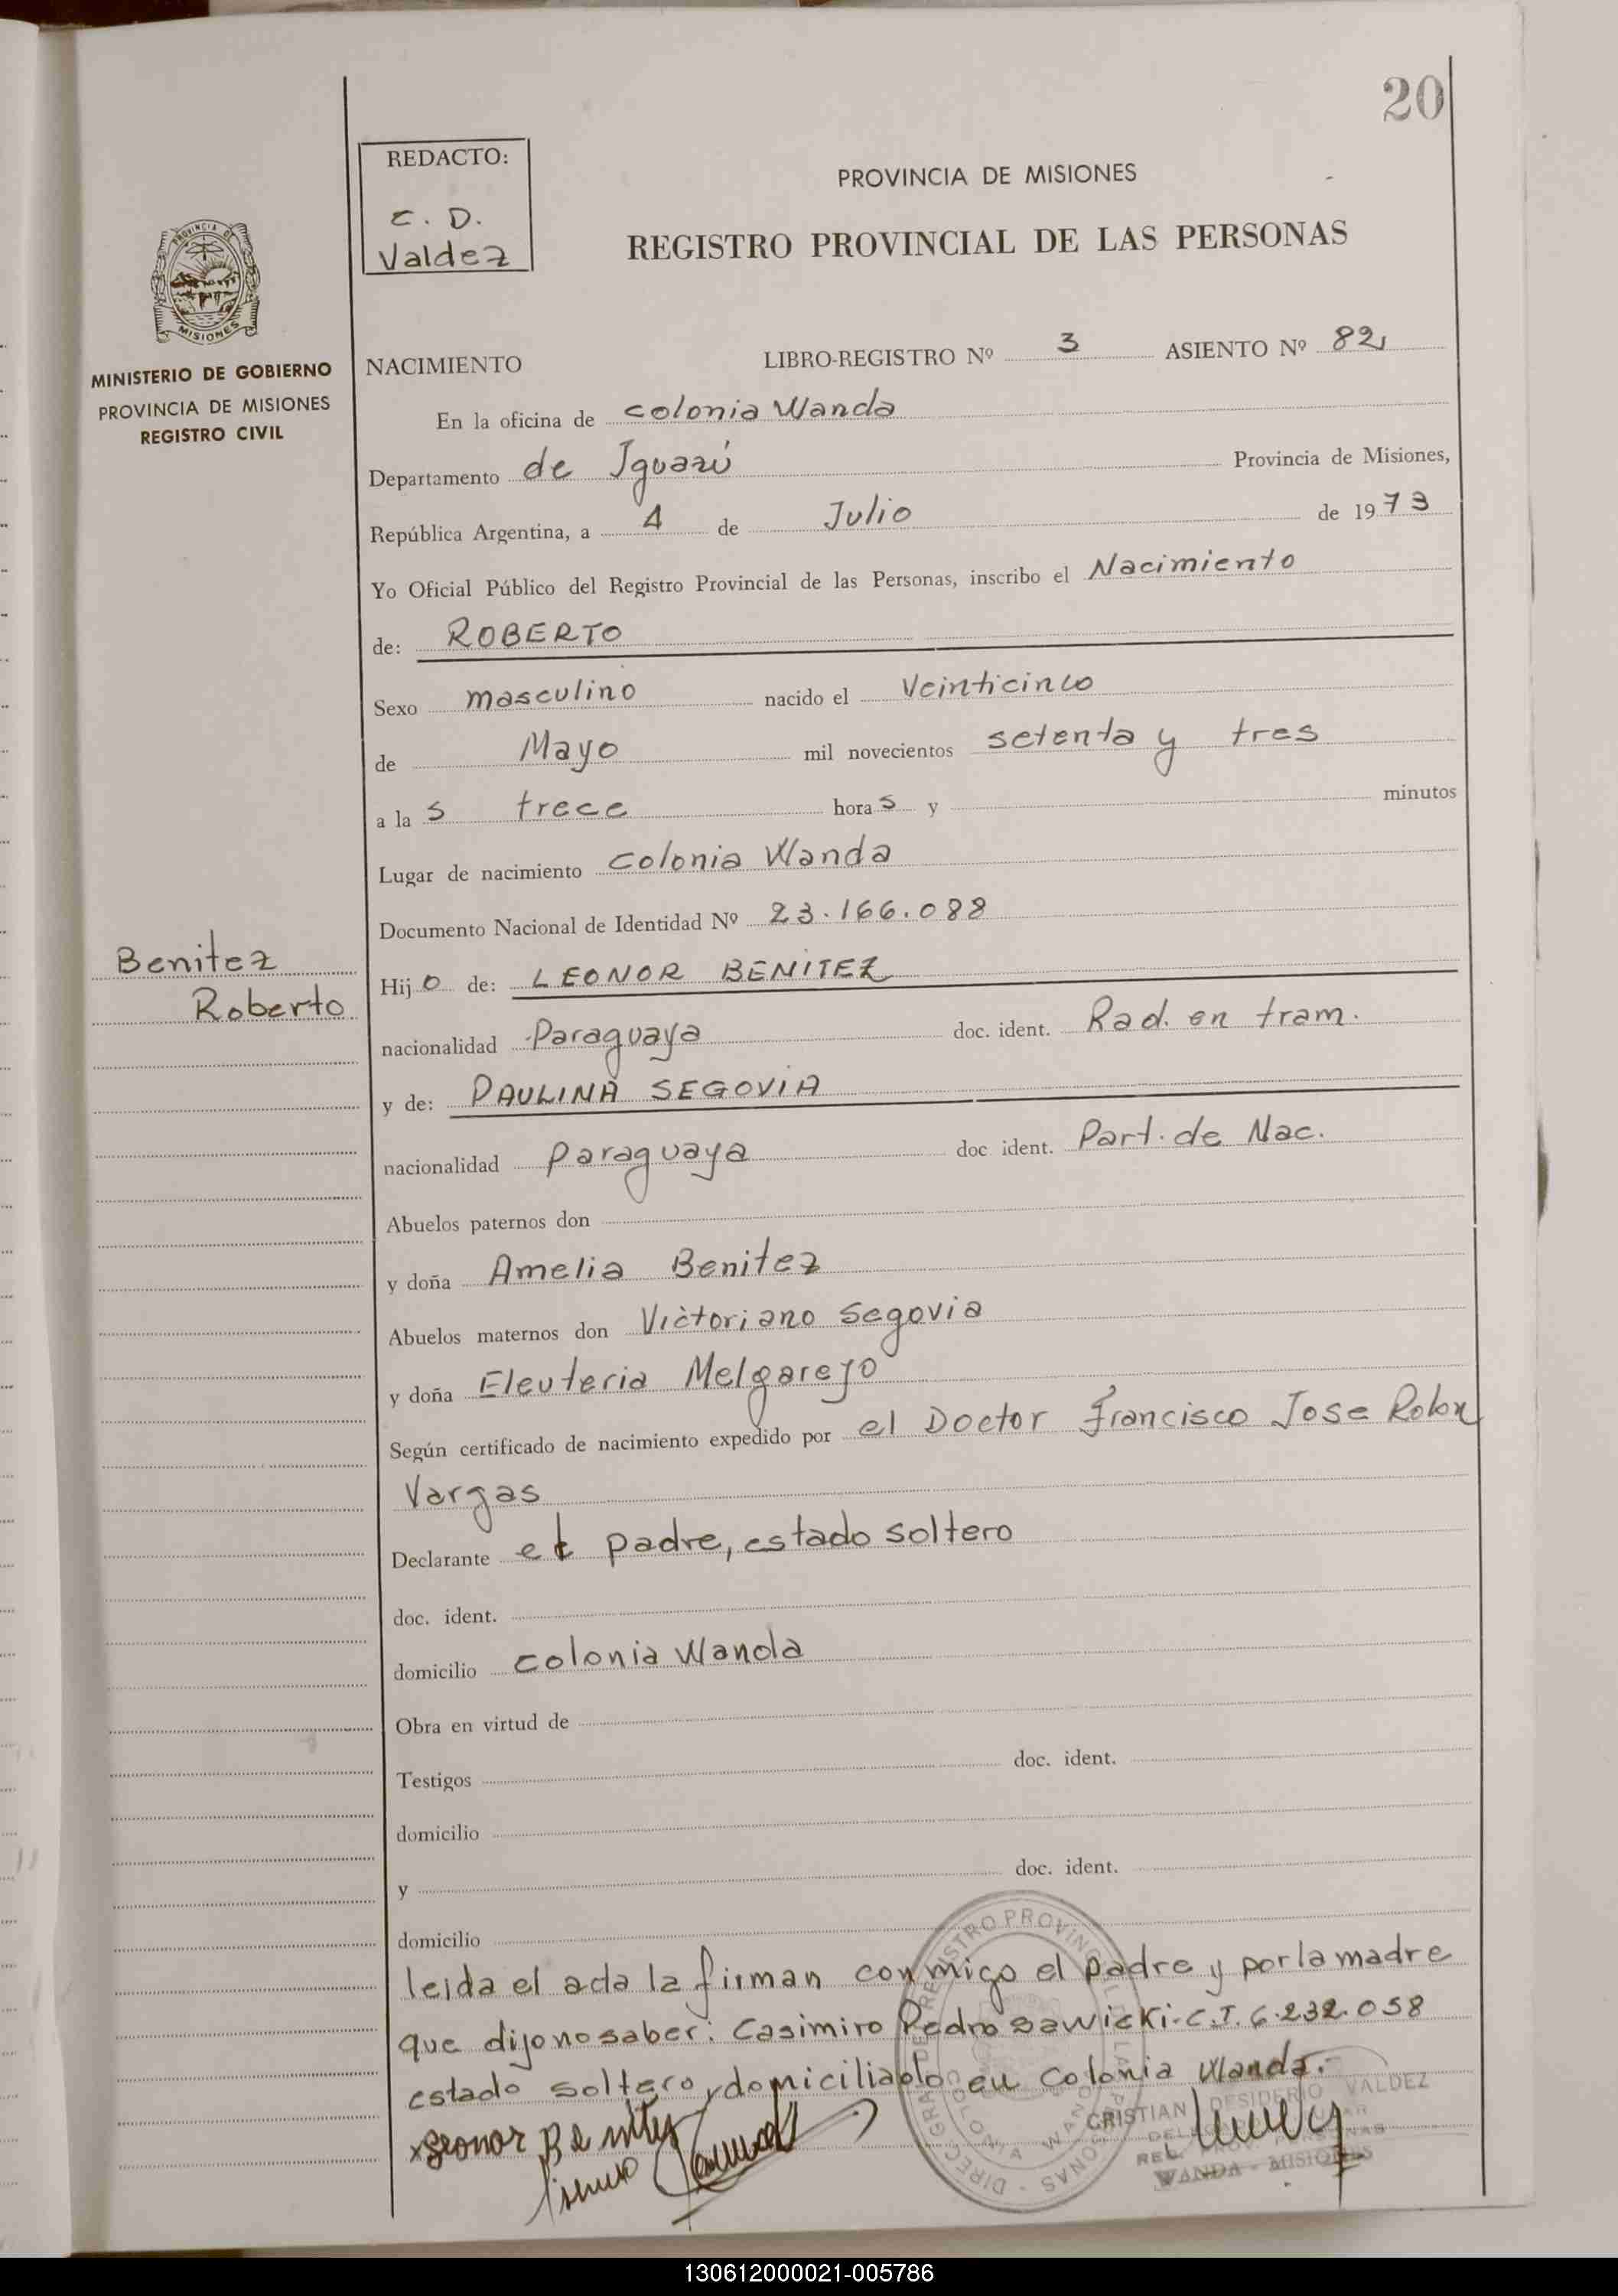 20
REDACTO:
C. D.
Valdez
PROVINCIA DE MISIONES
REGISTRO PROVINCIAL DE LAS PERSONAS
PROVINCIA DE
MISIONES
MINISTERIO DE GOBIERNO
PROVINCIA DE MISIONES
REGISTRO CIVIL
NACIMIENTO LIBRO-REGISTRO Nº 3 ASIENTO Nº 82
En la oficina de Colonia Wanda
Departamento de Iguazú Provincia de Misiones,
República Argentina, a 4 de Julio de 1973
Yo Oficial Público del Registro Provincial de las Personas, inscribo el Nacimiento
de: ROBERTO
Sexo masculino nacido el Veinticinco
de Mayo mil novecientos setenta y tres
a la s trece hora s y minutos
Lugar de nacimiento Colonia Wanda
Documento Nacional de Identidad Nº 23.166.088
Benitez
Roberto
Hij o de: LEONOR BENITEZ
nacionalidad Paraguaya doc. ident. Rad. en tram.
y de: PAULINA SEGOVIA
nacionalidad Paraguaya doc ident. Part. de Nac.
Abuelos paternos don
y doña Amelia Benitez
Abuelos maternos don Victoriano Segovia
y doña Eleuteria Melgarejo
Según certificado de nacimiento expedido por el Doctor Francisco Jose Rolon
Vargas
Declarante el padre, estado soltero
doc. ident.
domicilio Colonia Wanda
Obra en virtud de
Testigos doc. ident.
domicilio
y doc. ident.
domicilio
leida el acta la firman conmigo el padre y por la madre
que dijo no saber: Casimiro Pedro Sawicki-C.I. 6.232.058
estado soltero y domiciliado en Colonia Wanda.-
Leonor Benitez
CRISTIAN DESIDERIO VALDEZ
WANDA - MISIONES
130612000021-005786